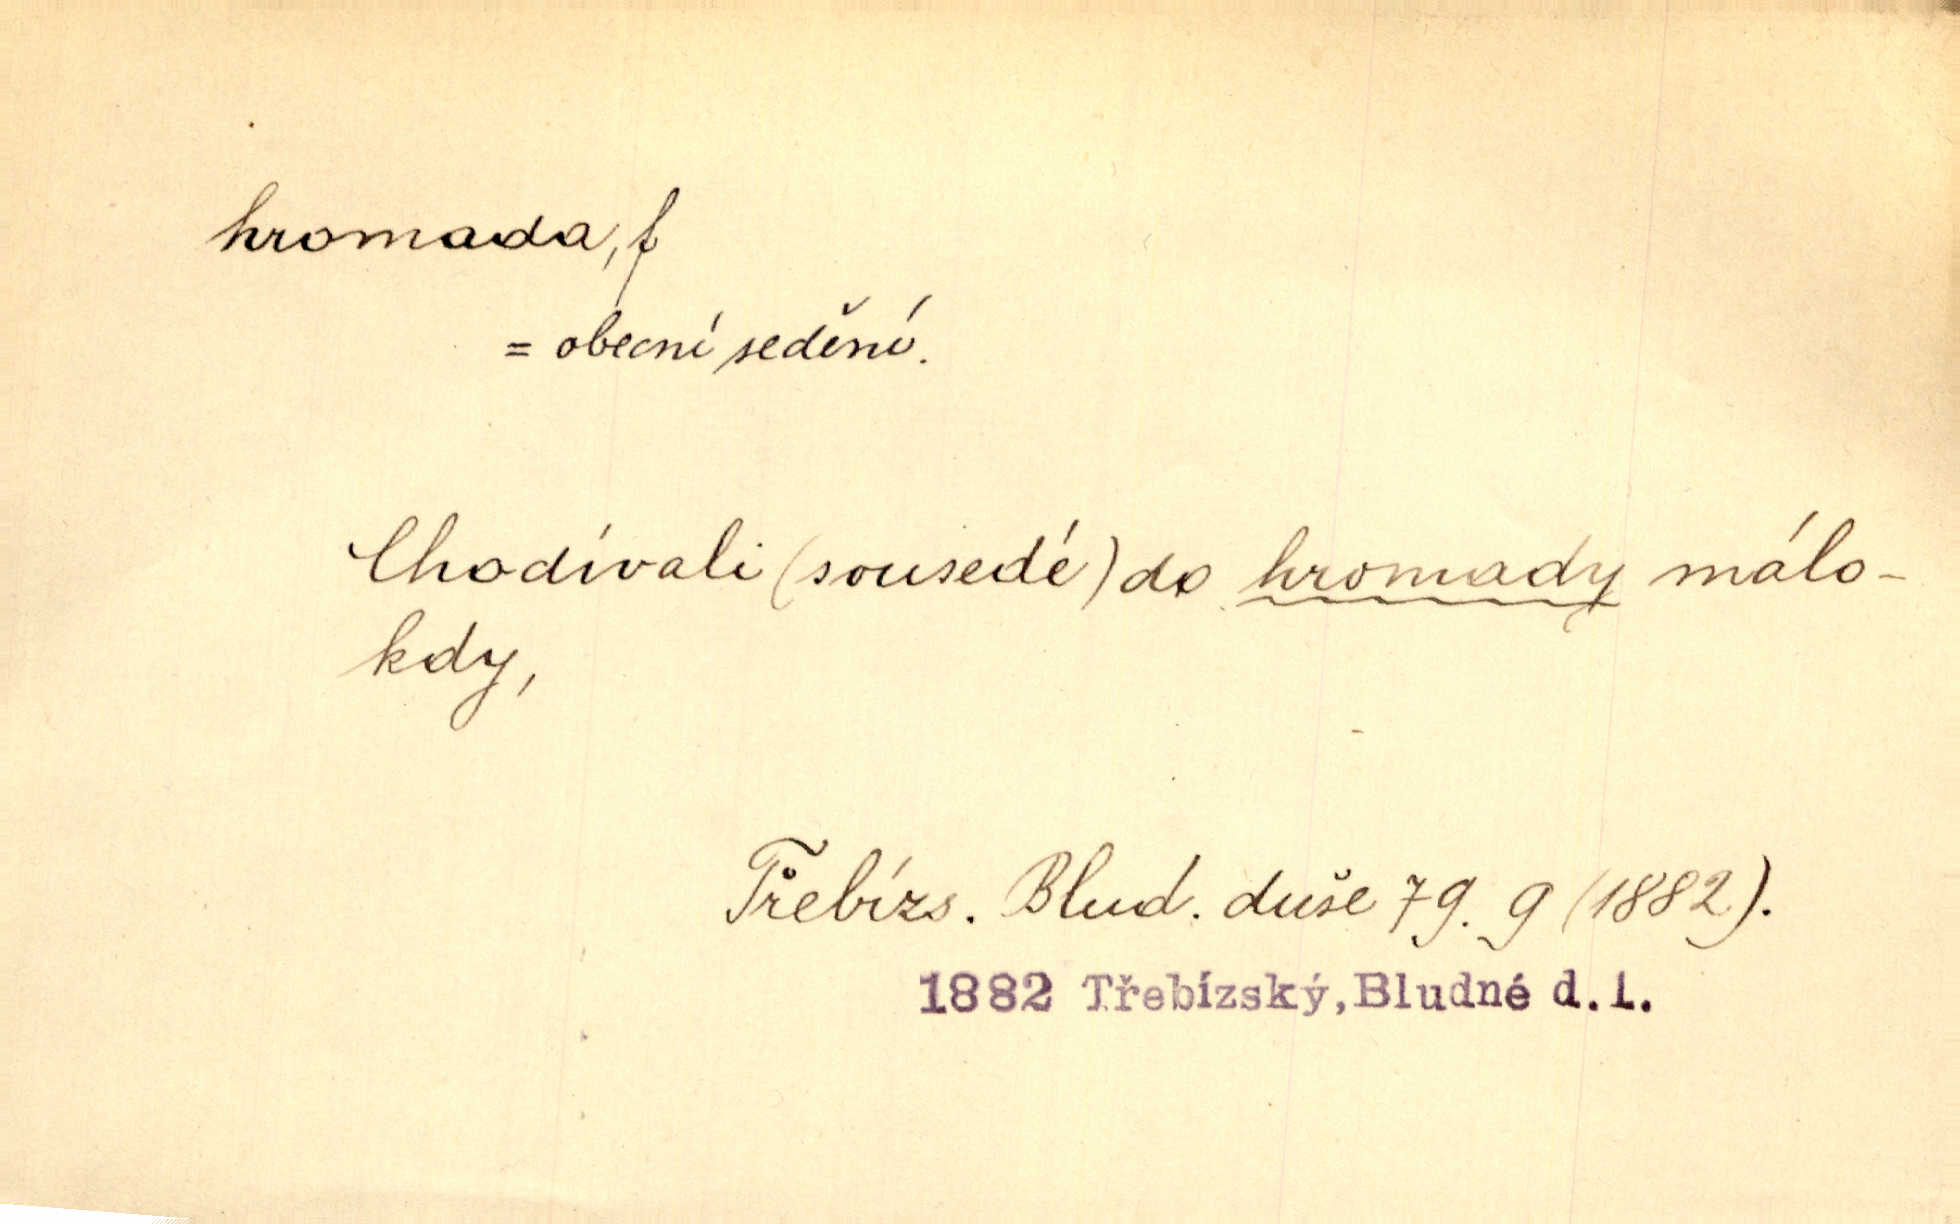 hromada, f
= obecní sedění.
Chodívali (sousedé) do hromady málo-
kdy,
Třebízs. Blud. duše 79. 9 (1882).
1882 Třebízský,Bludné d.i.